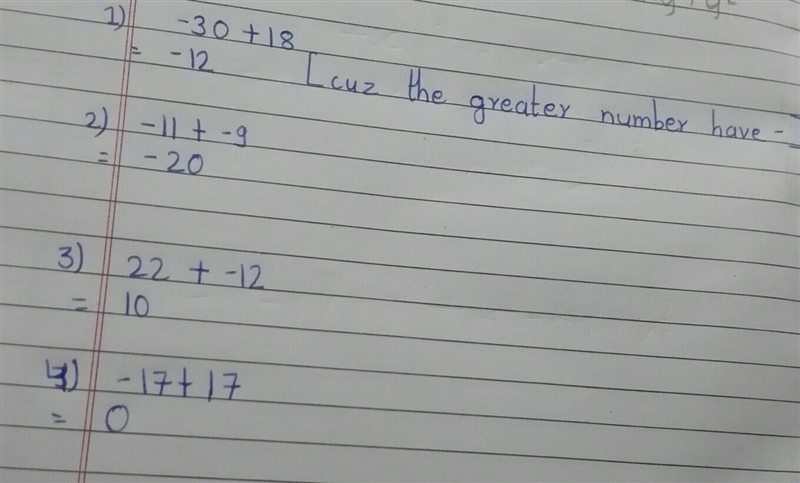 1) -30 + 18
= -12 [cuz the greater number have -]
2) -11 + -9
= -20
3) 22 + -12
= 10
4) -17 + 17
= 0